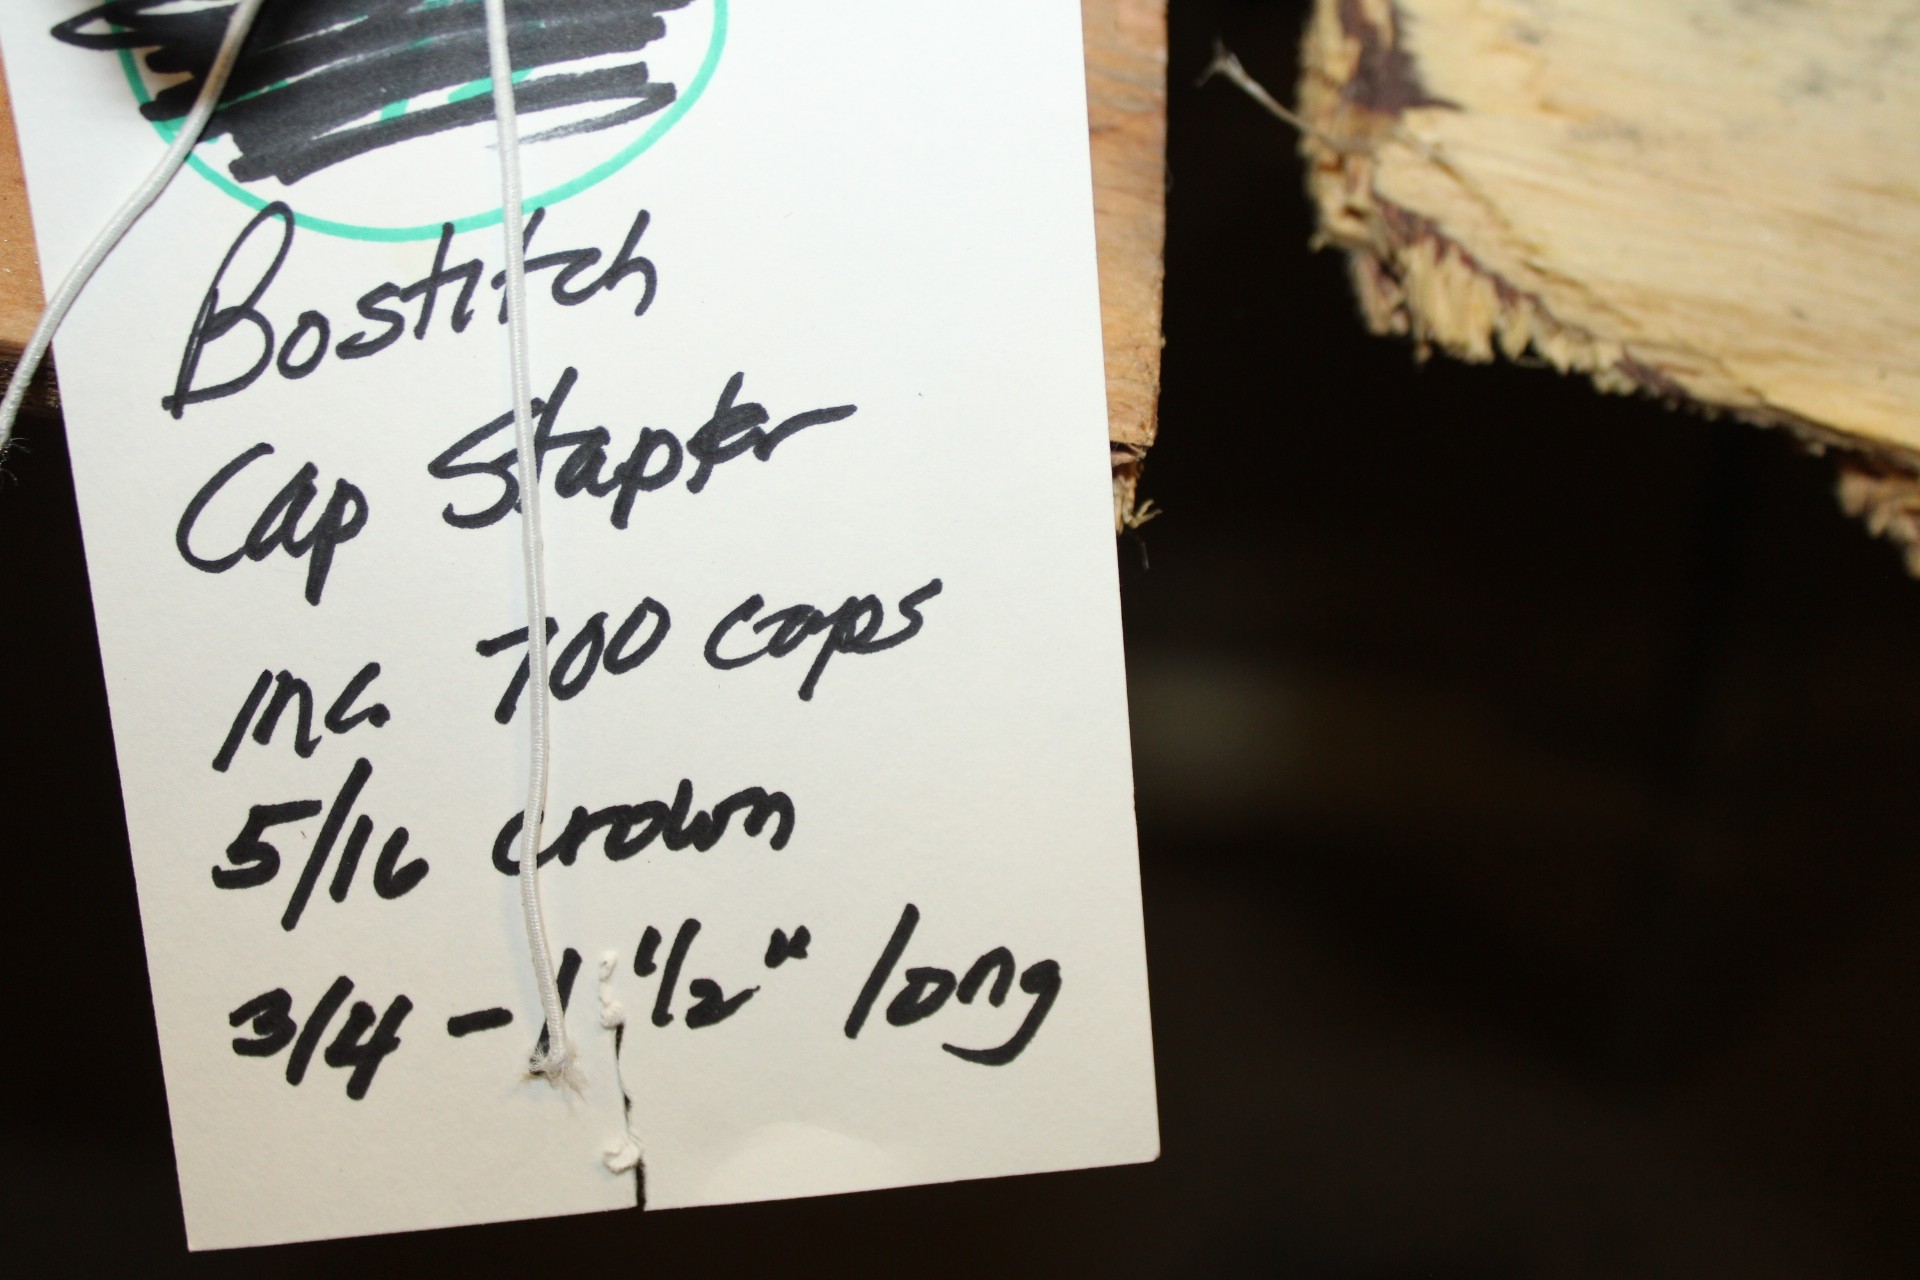 Bostitch
Cap Stapler
inc. 700 caps
5/16 crown
3/4 - 1 1/2" long